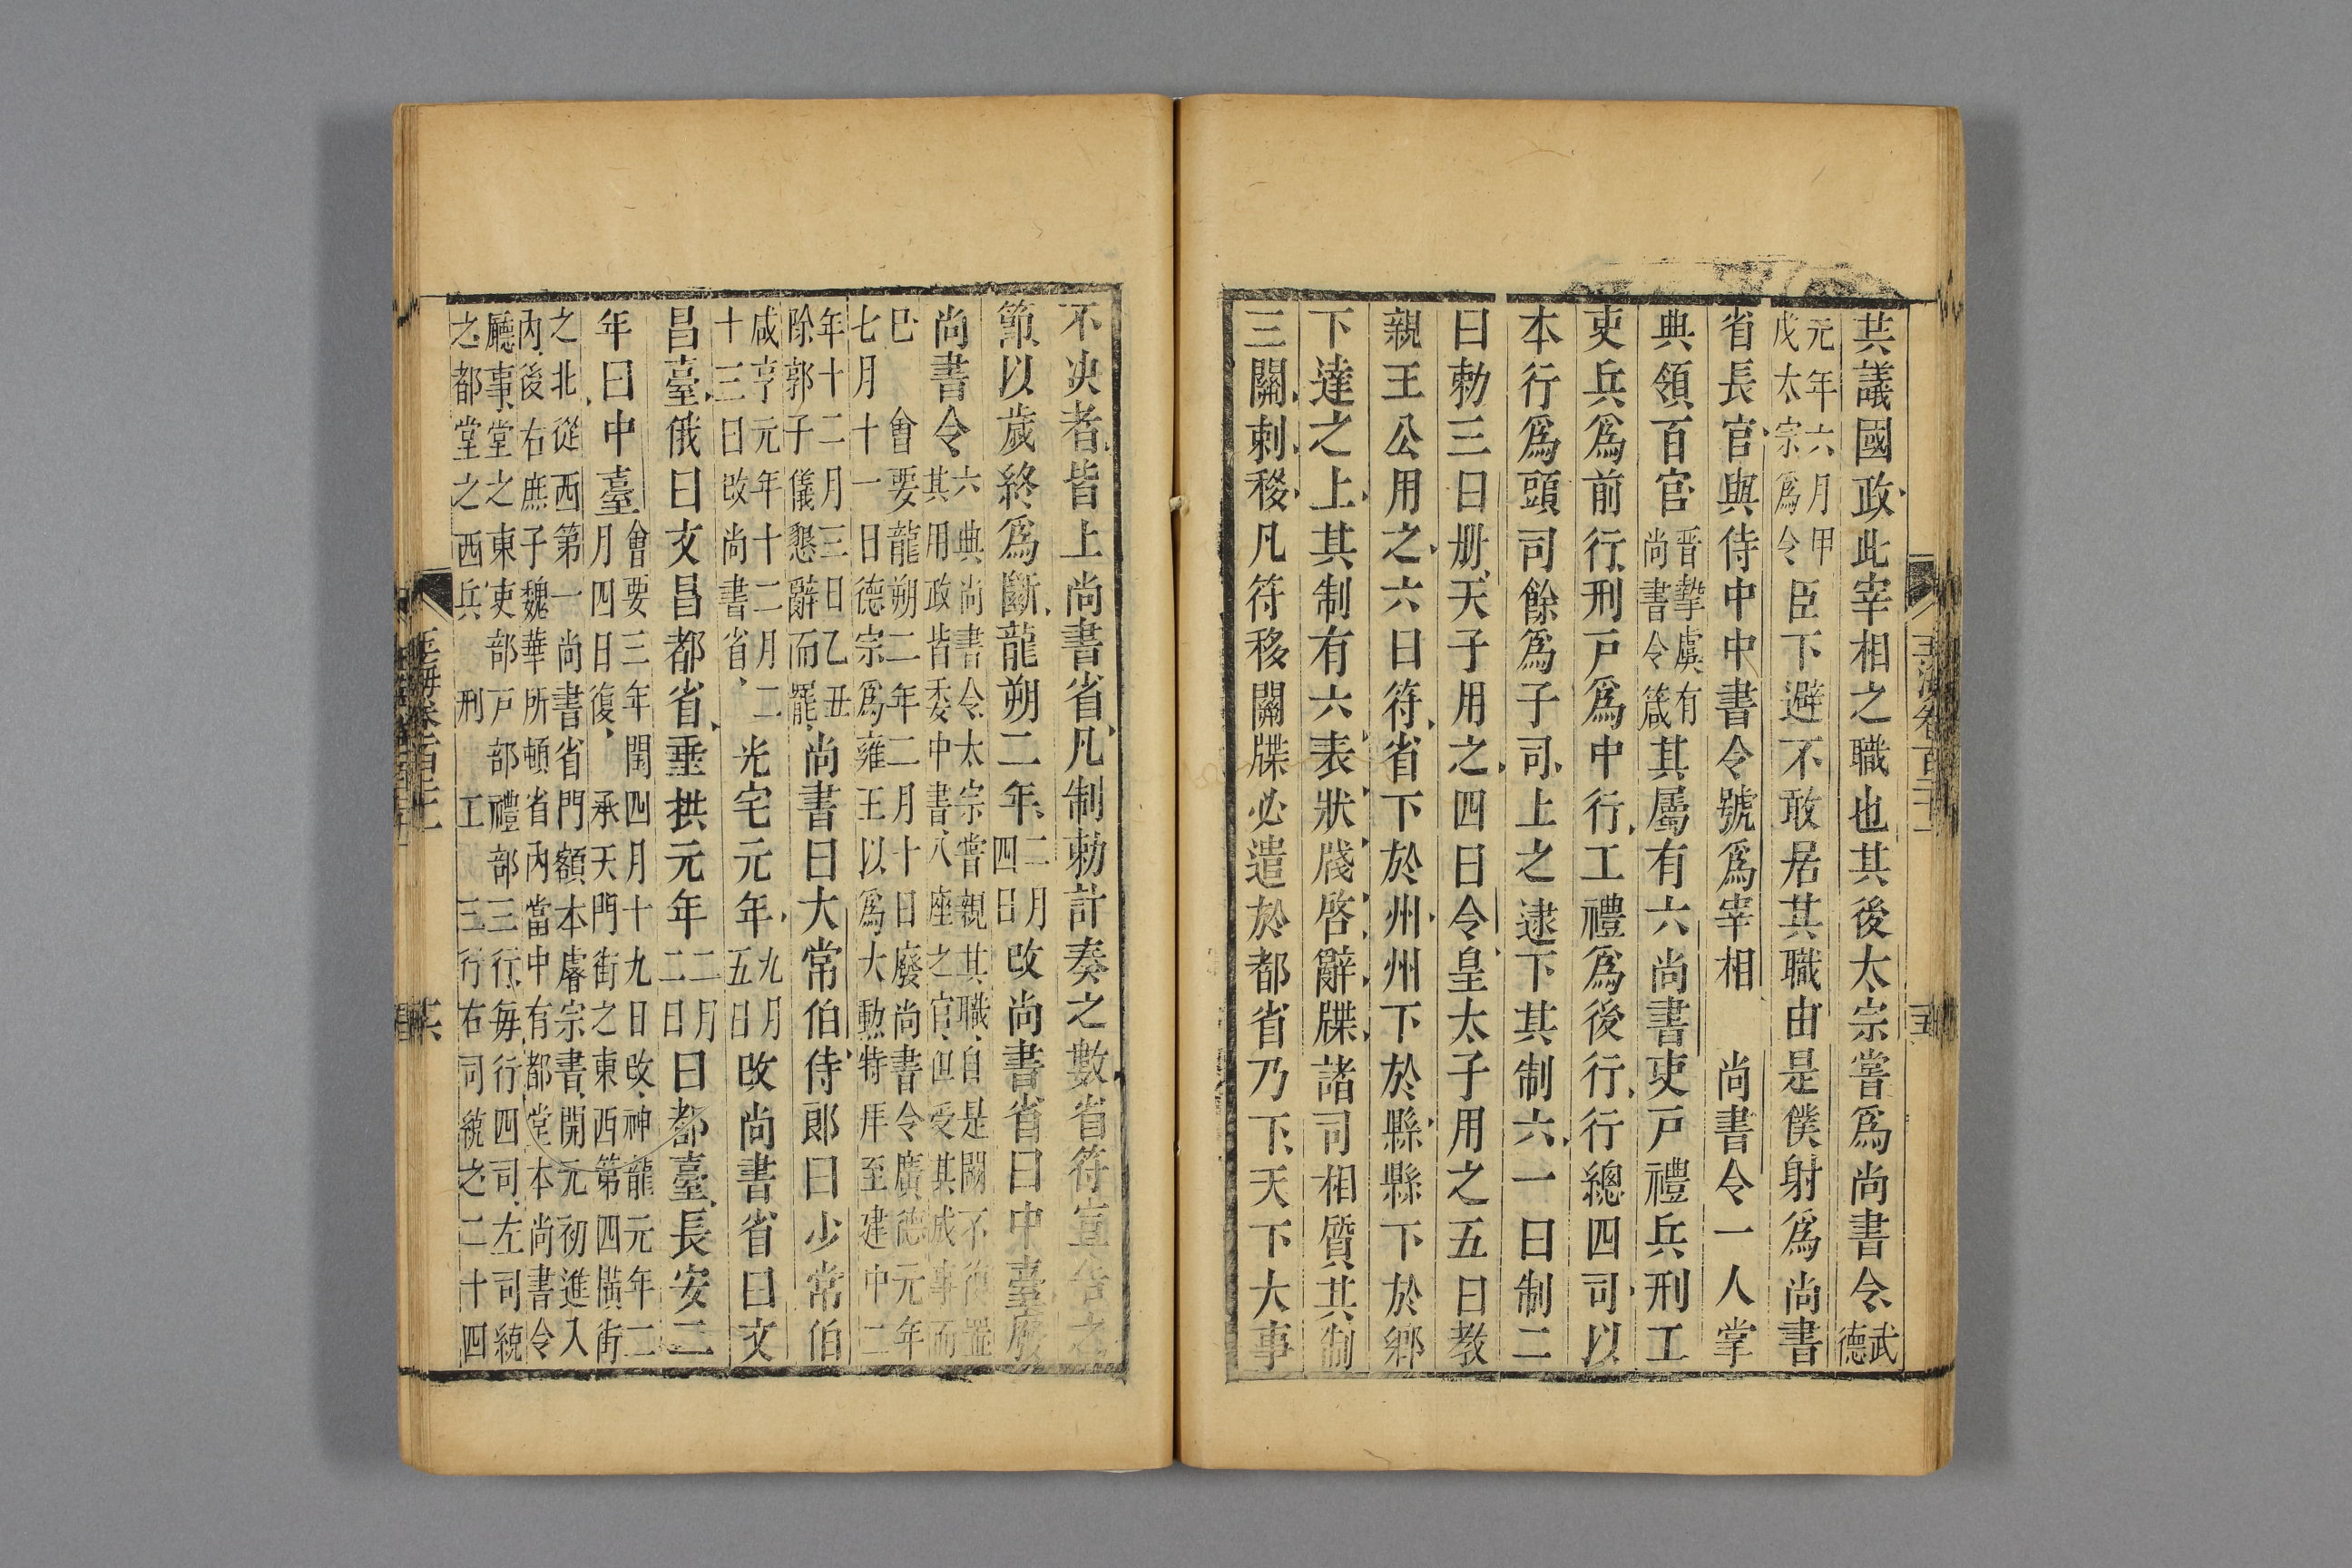 共議國政此宰相之職也其後太宗嘗爲尚書令武德
元年六月甲戌太宗爲令臣下避不敢居其職由是僕射爲尚書
省長官與侍中中書令號爲宰相　尚書令一人掌
典領百官晋摯虞有尚書令箴其屬有六尚書吏戸禮兵刑工
吏兵爲前行刑戸爲中行工禮爲後行行總四司以
本行爲頭司餘爲子司上之逮下其制六一曰制二
曰勅三曰册天子用之四曰令皇太子用之五曰教
親王公用之六曰符省下於州州下於縣縣下於鄉
下達之上其制有六表狀牋啓辭牒諸司相質其制
三關刺移凡符移關牒必遣於都省乃下天下大事
不决者皆上尚書省凡制勅計奏之數省符宣告之
節以歲終爲斷龍朔二年二月四日改尚書省曰中臺廢
尚書令六典尚書令太宗嘗親其職自是闕不復置其用政皆委中書八座之官但受其成事而
巳　會要龍朔二年二月十日廢尚書令廣德元年七月十一日德宗爲雍王以爲大勲特拜至建中二
年十二月三日乙丑除郭子儀懇辭而罷尚書曰大常伯侍郎曰少常伯
咸亨元年十二月二十三日改尚書省光宅元年九月五日改尚書省曰文
昌臺俄曰文昌都省垂拱元年二月二日曰都臺長安二
年曰中臺會要三年閏四月十九日改神龍元年二月四日復　承天門街之東西第四橫街
之北從西第一尚書省門額本睿宗書開元初進入內後右庶子魏華所頓省內當中有都堂本尚書令
廳事堂之東吏部戸部禮部三行每行四司左司統之都堂之西兵　刑　工三行右司統之二十四